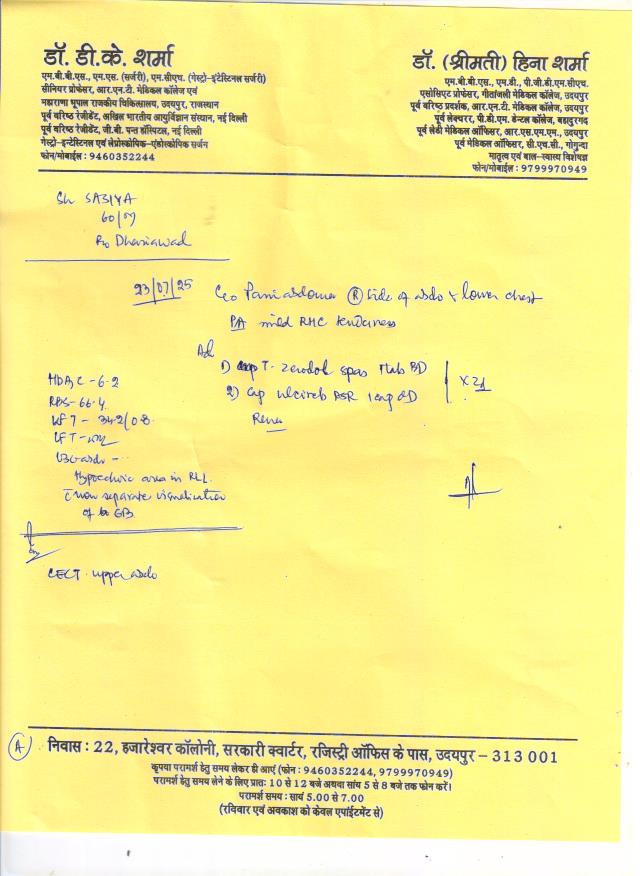 डॉ. डी.के. शर्मा
एम.बी.बी.एस., एम.एस. (सर्जरी), एम.सीएच. (गेस्ट्रो-इंटेस्टिनल सर्जरी)
सीनियर प्रोफेसर, आर.एन.टी. मेडिकल कॉलेज एवं
महाराणा भूपाल राजकीय चिकित्सालय, उदयपुर, राजस्थान
पूर्व वरिष्ठ रेजीडेंट, अखिल भारतीय आयुर्विज्ञान संस्थान, नई दिल्ली
पूर्व वरिष्ठ रेजीडेंट, जी.बी. पन्त हॉस्पिटल, नई दिल्ली
गेस्ट्रो-इन्टेस्टिनल एवं लेप्रोस्कोपिक-एंडोस्कोपिक सर्जन
फोन/मोबाईल : 9460352244
डॉ. (श्रीमती) हिना शर्मा
एम.बी.बी.एस., एम.डी., पी.जी.डी.एम.सीएच.
एसोसिएट प्रोफेसर, गीतांजली मेडिकल कॉलेज, उदयपुर
पूर्व वरिष्ठ प्रदर्शक, आर.एन.टी. मेडिकल कॉलेज, उदयपुर
पूर्व लेक्चरर, पी.डी.एम. डेन्टल कॉलेज, बहादुरगढ़
पूर्व लेडी मेडिकल ऑफिसर, आर.एस.एम.एम., उदयपुर
पूर्व मेडिकल ऑफिसर, सी.एच.सी., गोगुन्दा
मातृत्व एवं बाल-स्वास्थ्य विशेषज्ञ
फोन/मोबाईल : 9799970949
Sh SABIYA
60/M
R/o Dhariawad
23/07/25 C/o Pain abdomen (R) side of abdo & lower chest
PA mild RHC tenderness
Ad
1) T. Zerodol spas 1 tab BD
2) Cap DSR 1 cap OD
x 2d
Review
HbA1C - 6.2
RBS - 66.4
KFT - 34.2/0.8
LFT -
USG abdo -
Hypoechoic area in RLL
c non separate visualisation
of GB
Adv
CECT upper abdo
(A)
निवास : 22, हजारेश्वर कॉलोनी, सरकारी क्वार्टर, रजिस्ट्री ऑफिस के पास, उदयपुर – 313 001
कृपया परामर्श हेतु समय लेकर ही आएं (फोन : 9460352244, 9799970949)
परामर्श हेतु समय लेने के लिए प्रातः 10 से 12 बजे अथवा सांय 5 से 8 बजे तक फोन करें।
परामर्श समय : सायं 5.00 से 7.00
(रविवार एवं अवकाश को केवल एपॉईंटमेंट से)